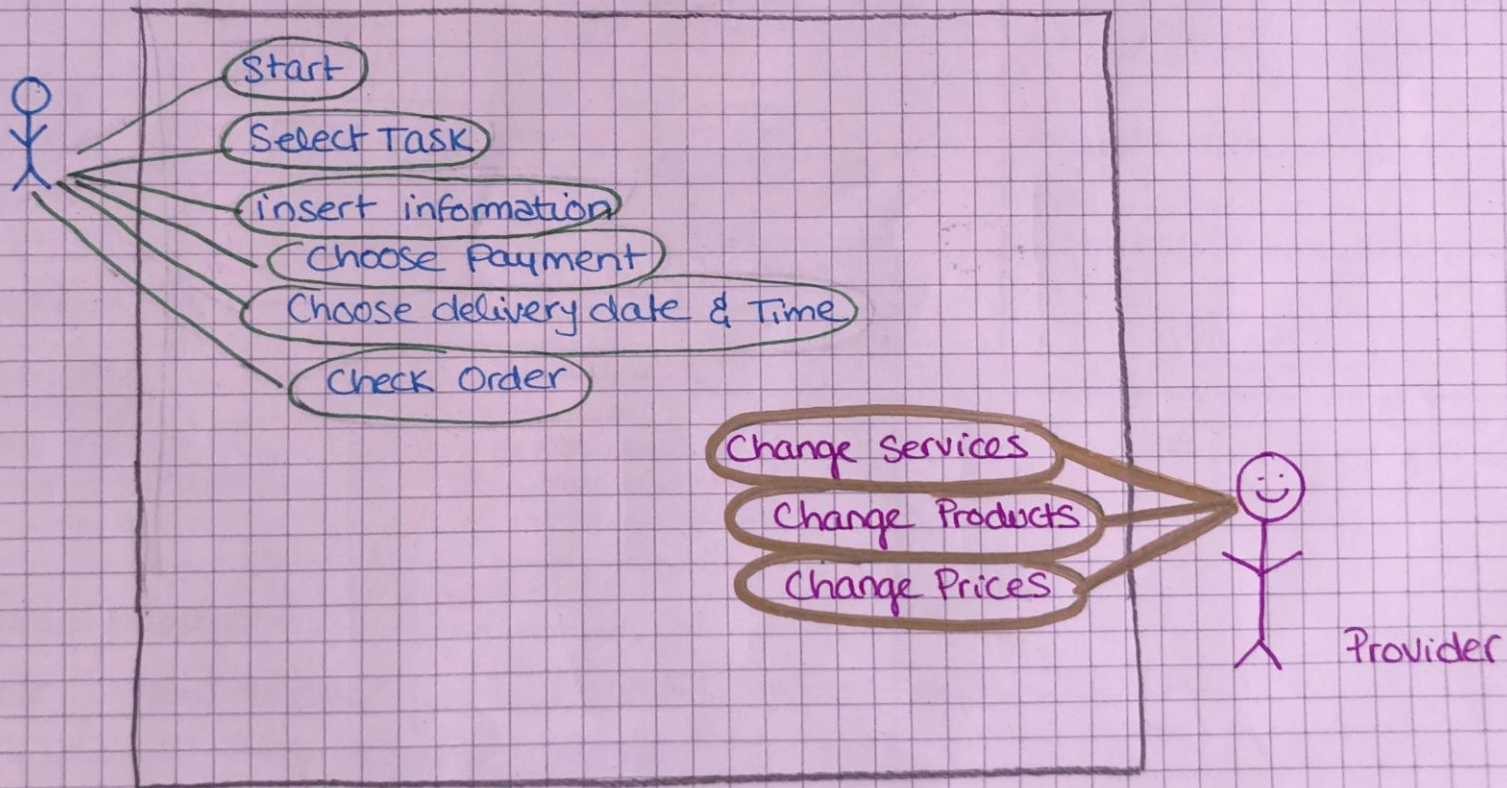 Start
Select Task
insert information
Choose Payment
Choose delivery date & Time
Check Order
Change Services
Change Products
Change Prices
Provider